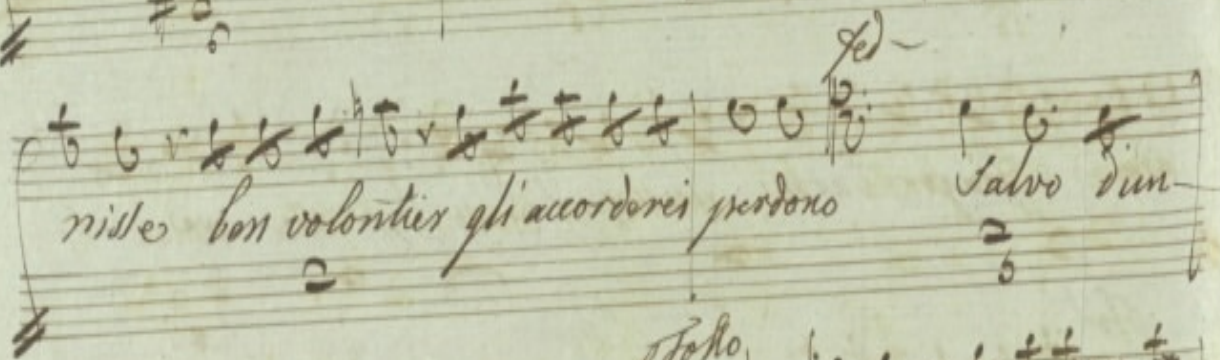 6
Fed
nisse ben volontier gli accorderei perdono Salvo d'un
6
Tosto